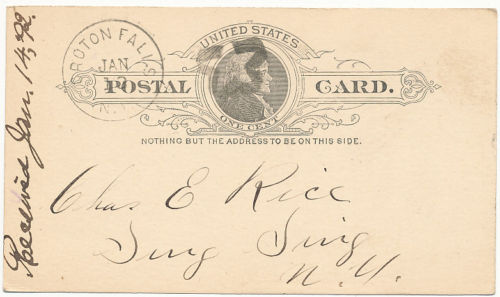 CROTON FALLS
JAN
N.Y.
UNITED STATES
POSTAL CARD.
ONE CENT
NOTHING BUT THE ADDRESS TO BE ON THIS SIDE.
Chas E Rice
Sing Sing
N.Y.
Received Jan. 14, 92.